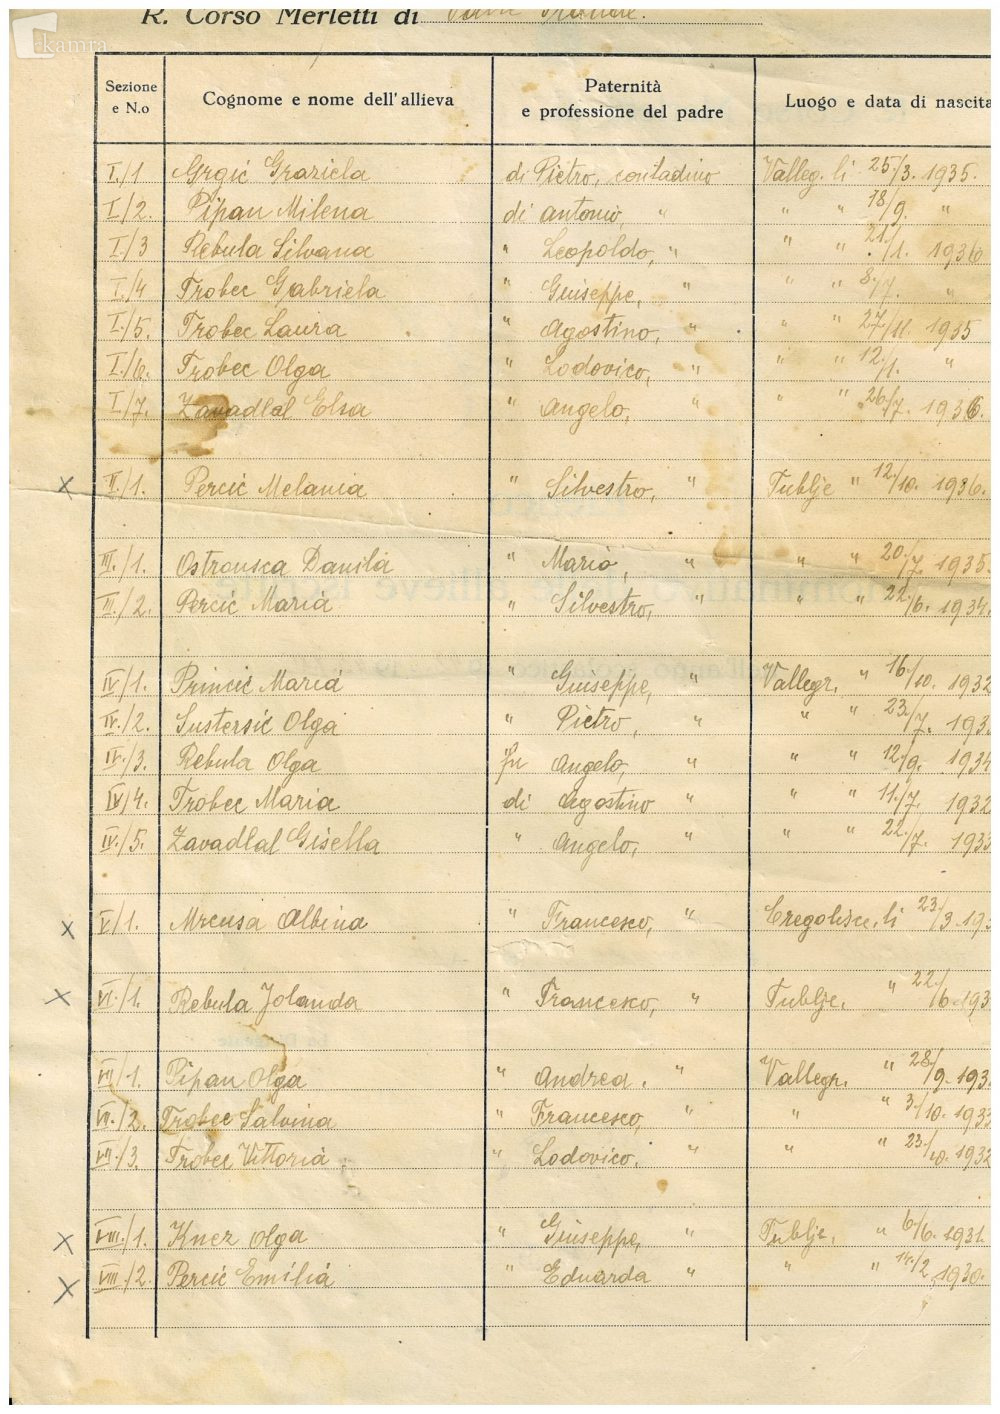 kamra
R. Corso Merletti di
Sezione e N.o | Cognome e nome dell'allieva | Paternità e professione del padre | Luogo e data di nascita
I./1 Grgić Graziela di Pietro, contadino Valleg. li 25/3. 1935.
I./2. Pipan Milena di Antonio, " " " 18/9. "
I./3 Rebula Silvana " Leopoldo, " " " 21/1. 1936
I./4 Trobec Gabriela " Giuseppe, " " " 8./7. "
I./5. Trobec Laura " Agostino, " " " 27/11. 1935
I./6. Trobec Olga " Lodovico, " " " 12/1. "
I./7. Zavadlal Elsa " Angelo, " " " 26/7. 1936.
x II./1. Percic Melania " Silvestro, " Tublje " 12/10. 1936.
III./1. Ostrousca Danila " Mario, " " " 20/7. 1935.
III./2. Percic Maria " Silvestro, " " " 22/6. 1934.
IV/1. Princic Maria " Giuseppe, " Vallegr. " 16/10. 1932
IV./2. Sustersic Olga " Pietro, " " " 23/7. 193
IV./3. Rebula Olga fu Angelo, " " " 12/9. 1934
IV/4. Trobec Maria di Agostino " " " 11./7. 1932
IV./5. Zavadlal Gisella " Angelo, " " " 22./7. 1933
x V/1. Mreusa Albina " Francesco, " li 23/3. 193
x VI./1. Rebula Jolanda " Francesco, " Tublje. " 22/6. 193
VII/1. Pipan Olga " Andrea. " Vallegr. " 28/9. 193
VII./2. Trobec Salvina " Francesco, " " " 3/10. 1933
VII./3. Trobec Vittoria " Lodovico. " " " 23./10. 1932
x VIII./1. Knez Olga " Giuseppe, " Tublje, " 6/6. 1931.
x VIII./2. Percic Emilia " Eduarda " " " 14./2. 1930.